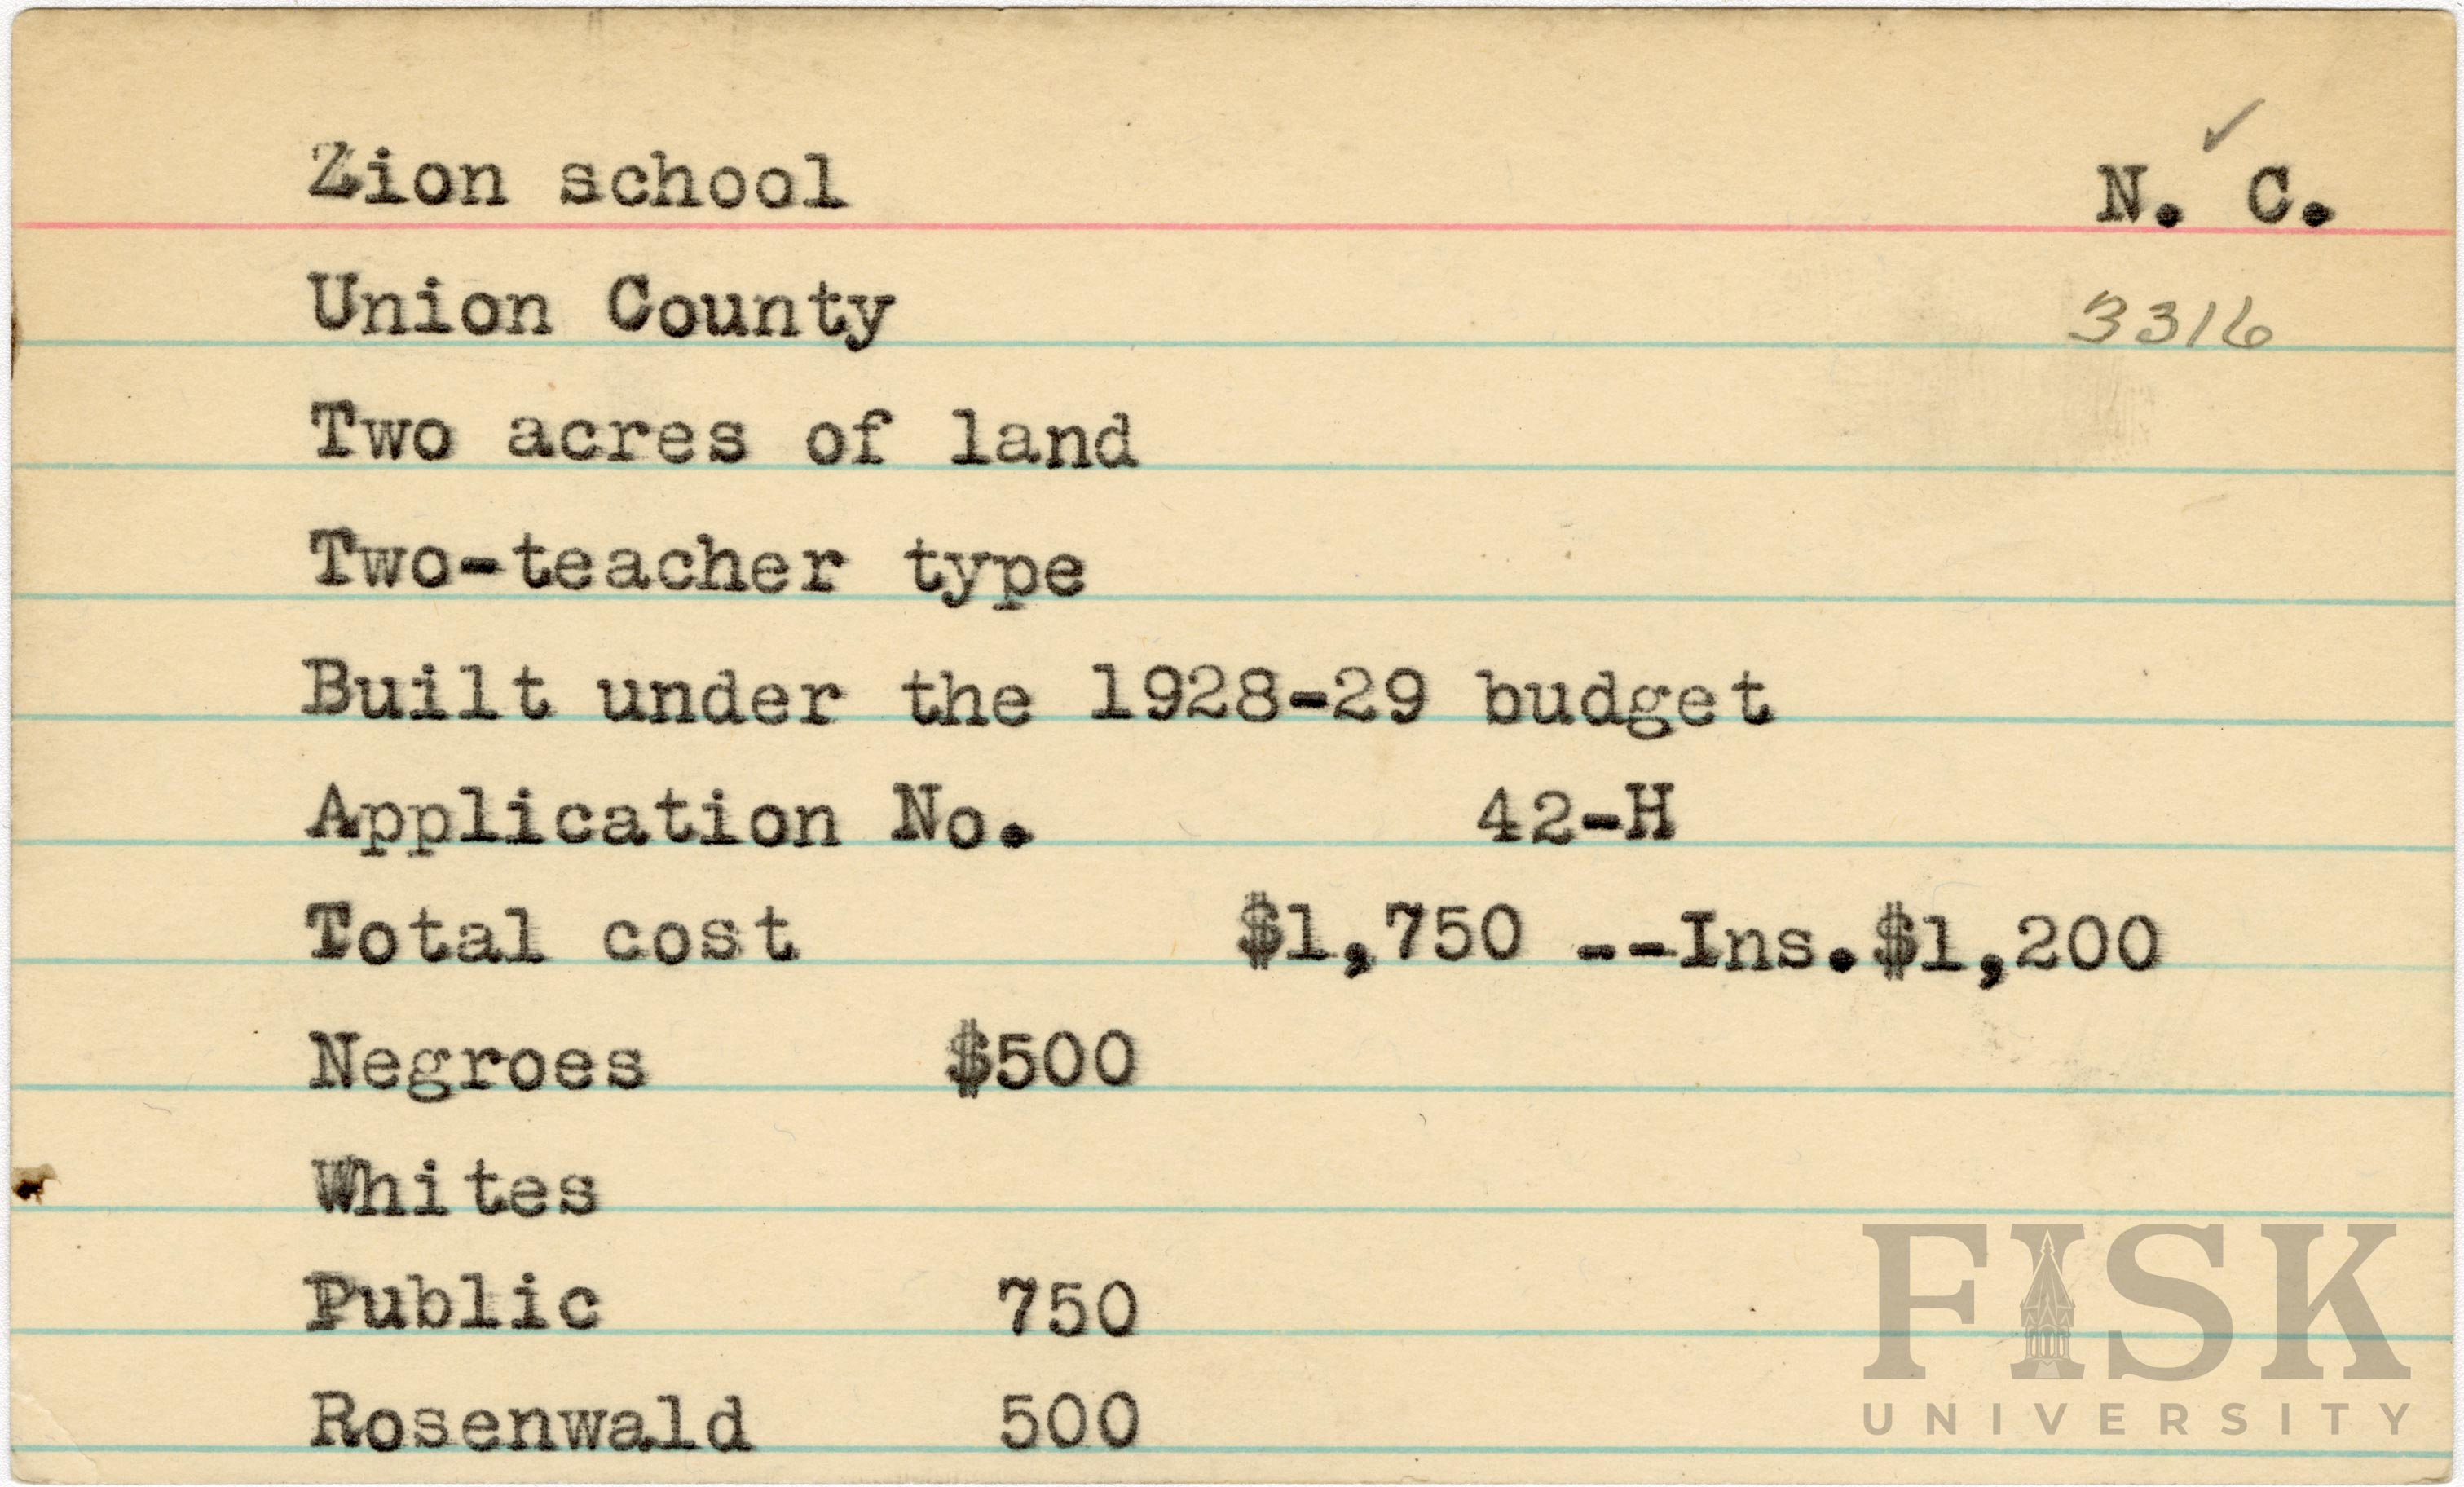 Zion school N. C.
Union County 3316
Two acres of land
Two-teacher type
Built under the 1928-29 budget
Application No. 42-H
Total cost $1,750 --Ins.$1,200
Negroes $500
Whites
Public 750
Rosenwald 500
FISK
UNIVERSITY